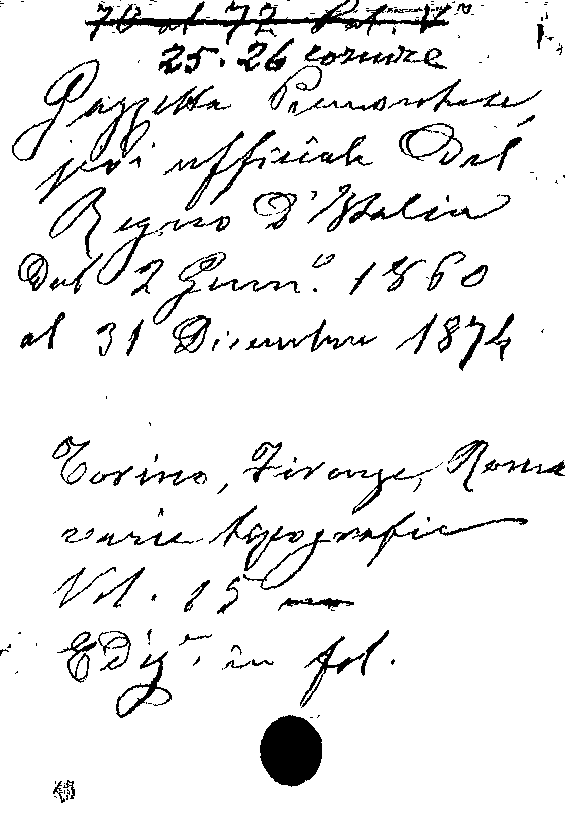 70 al 72 Pal. V°
25. 26 cornice
Gazzetta Piemontese,
poi ufficiale Del
Regno D'Italia
Dal 2 Genn.º 1860
al 31 Dicembre 1874
Torino, Firenze, Roma
varie tipografie
Vol. 15
Ediz.e in fol.